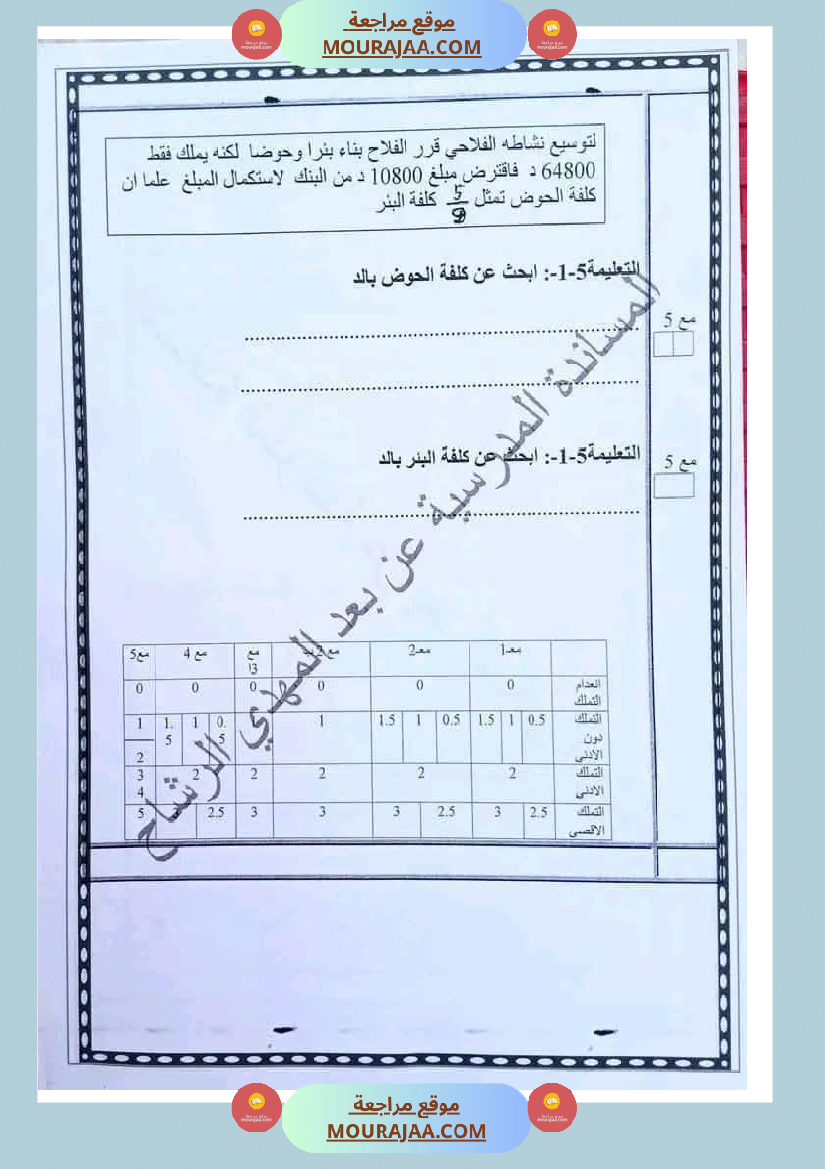 موقع مراجعة
MOURAJAA.COM
لتوسيع نشاطه الفلاحي قرر الفلاح بناء بئرا وحوضا لكنه يملك فقط
64800 د فاقترض مبلغ 10800 د من البنك لاستكمال المبلغ علما ان
كلفة الحوض تمثل 5/9 كلفة البئر
التعليمة5-1-: ابحث عن كلفة الحوض بالد
مع 5
التعليمة5-1-: ابحث عن كلفة البئر بالد
مع 5
المساندة المدرسية عن بعد المهدي الرشاح
معـ1 معـ2 مع2ب مع 3ا مع 4 مع5
انعدام التملك 0 0 0 0 0 0
التملك دون الادنى 0.5 1 1.5 0.5 1 1.5 1 0.5 1 1.5 1 2
التملك الادنى 2 2 2 2 2 3 4
التملك الاقصى 2.5 3 2.5 3 3 3 2.5 3 5
موقع مراجعة
MOURAJAA.COM